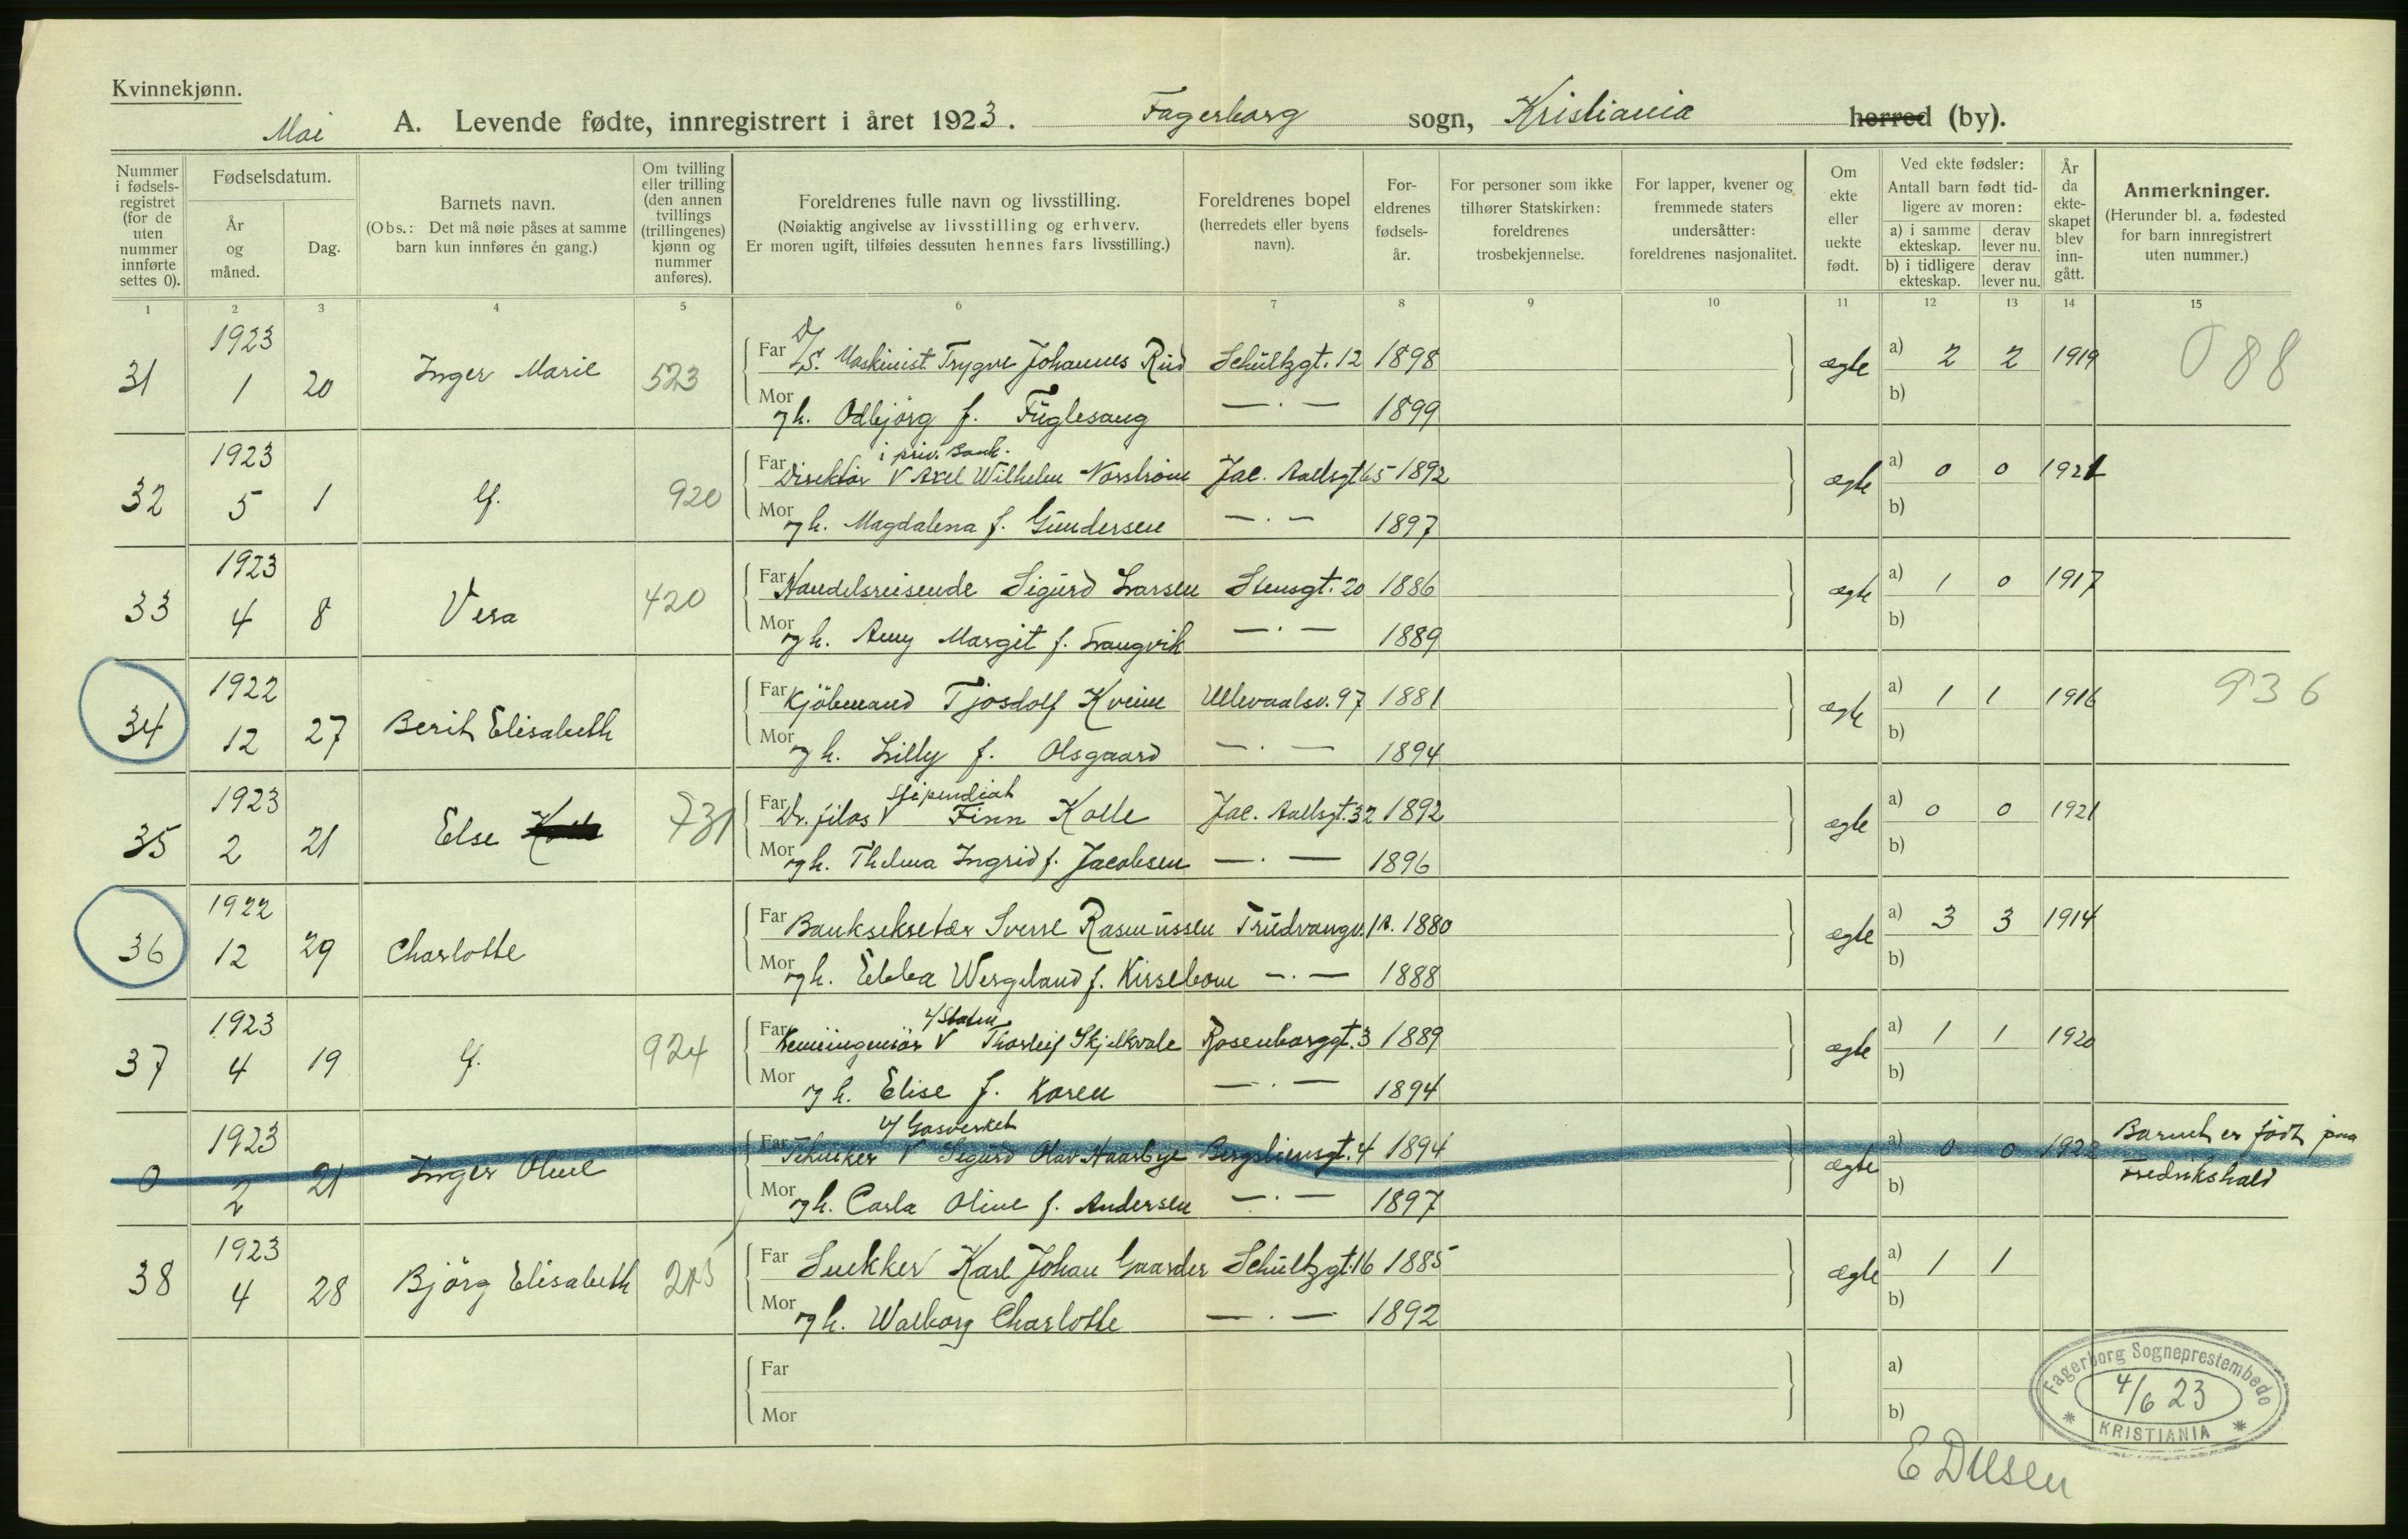 Kvinnekjønn.
Mai A. Levende fødte, innregistrert i året 1923. Fagerborg sogn, Kristiania herred (by).
Nummer i fødselsregistret (for de uten nummer innførte settes 0).
Fødselsdatum.
År og måned.
Dag.
Barnets navn.
(Obs.: Det må nøie påses at samme barn kun innføres én gang.)
Om tvilling eller trilling (den annen tvillings (trillingenes) kjønn og nummer anføres).
Foreldrenes fulle navn og livsstilling.
(Nøiaktig angivelse av livsstilling og erhverv.
Er moren ugift, tilføies dessuten hennes fars livsstilling.)
Foreldrenes bopel
(herredets eller byens navn).
Foreldrenes fødselsår.
For personer som ikke tilhører Statskirken: foreldrenes trosbekjennelse.
For lapper, kvener og fremmede staters undersåtter: foreldrenes nasjonalitet.
Om ekte eller uekte født.
Ved ekte fødsler:
Antall barn født tidligere av moren:
a) i samme ekteskap. derav lever nu.
b) i tidligere ekteskap. derav lever nu.
År da ekteskapet blev inngått.
Anmerkninger.
(Herunder bl. a. fødested for barn innregistrert uten nummer.)
1 2 3 4 5 6 7 8 9 10 11 12 13 14 15
31 1923 1 20 Inger Marie 523 Far D/S. Maskinist Trygve Johannes Rud Schultzgt. 12 1898 ægte a) 2 2 1919 088
Mor og h. Odbjörg f. Fuglesang —·— 1899 b)
32 1923 5 1 lf. 920 Far Direktör V i priv. bank. Axel Wilhelm Norström Jac. Aallsgt 65 1892 ægte a) 0 0 1921
Mor og h. Magdalena f. Gundersen —·— 1897 b)
33 1923 4 8 Vera 420 Far Handelsreisende Sigurd Larsen Stensgt. 20 1886 ægte a) 1 0 1917
Mor og h. Amy Margit f. Langvik —·— 1889 b)
34 1922 12 27 Berit Elisabeth Far Kjöbmand Tjosdolf Kveim Ullevaalsv. 97 1881 ægte a) 1 1 1916 936
Mor og h. Lilly f. Olsgaard —·— 1894 b)
35 1923 2 21 Else 731 Far Dr. filos V stipendiat Finn Kolle Jac. Aallsgt. 32 1892 ægte a) 0 0 1921
Mor og h. Thelma Ingrid f. Jacobsen —·— 1896 b)
36 1922 12 29 Charlotte Far Banksekretær Sverre Rasmussen Trudvangv. 1880 ægte a) 3 3 1914
Mor og h. Ebba Wergeland f. Kisselbom —·— 1888 b)
37 1923 4 19 lf. 924 Far Kemiingeniör V v/ Staten Thorleif Skjelkvale Rosenborggt. 3 1889 ægte a) 1 1 1920
Mor og h. Elise f. Koren —·— 1894 b)
0 1923 2 21 Inger Oline Far Tekniker V v/ Gasverket Sigurd Olav Haarbye Bergsliensgt. 4 1894 ægte a) 0 0 1922 Barnet er födt paa
Mor og h. Carla Oline f. Andersen —·— 1897 b) Fredrikshald
38 1923 4 28 Björg Elisabeth 213 Far Snekker Karl Johan Gaarder Schultzgt. 16 1885 ægte a) 1 1
Mor og h. Walborg Charlotte —·— 1892 b)
Far a)
Mor b)
Fagerborg Sogneprestembede
4/6 23
KRISTIANIA